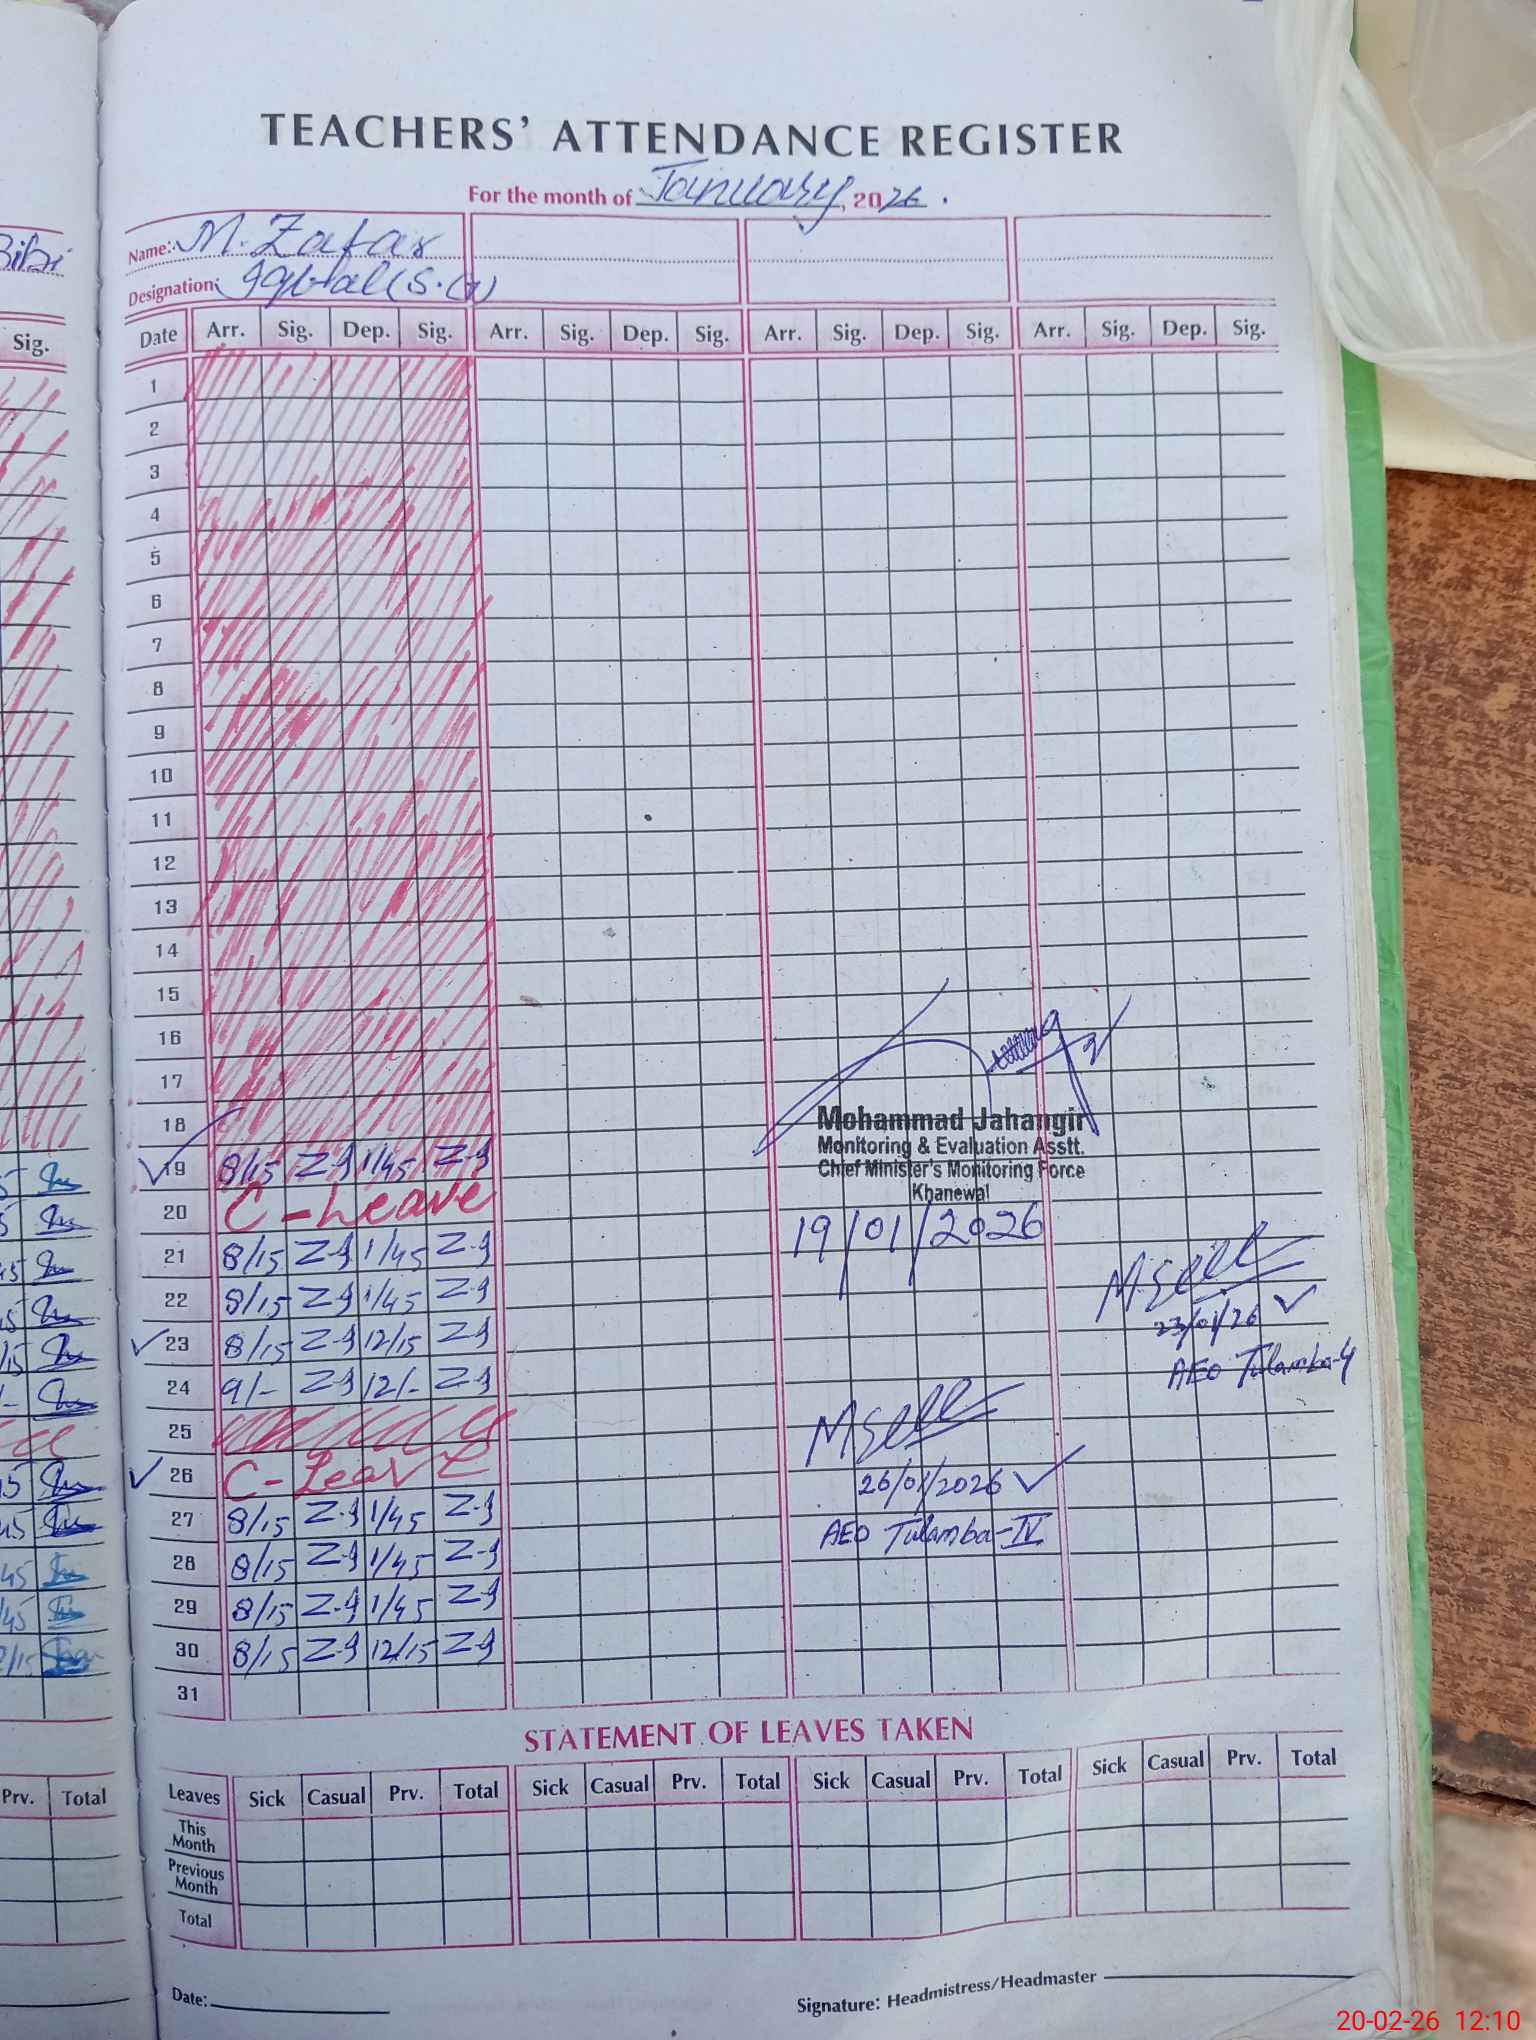 TEACHERS' ATTENDANCE REGISTER
For the month of January, 2026.
Name: M. Zafar
Designation: Iqbal (S.G)
Date Arr. Sig. Dep. Sig. Arr. Sig. Dep. Sig. Arr. Sig. Dep. Sig. Arr. Sig. Dep. Sig.
Bibi
Sig.
1
2
3
4
5
6
7
8
9
10
11
12
13
14
15
16
17
18
19 8/15 Z-I 1/45 Z-I
20 C-Leave
21 8/15 Z-I 1/45 Z-I
22 8/15 Z-I 1/45 Z-I
23 8/15 Z-I 12/15 Z-I
24 9/- Z-I 12/- Z-I
25
26 C-Leave
27 8/15 Z-I 1/45 Z-I
28 8/15 Z-I 1/45 Z-I
29 8/15 Z-I 1/45 Z-I
30 8/15 Z-I 12/15 Z-I
31
Mohammad Jahangir
Monitoring & Evaluation Asstt.
Chief Minister's Monitoring Force
Khanewal
19/01/2026
23/01/26
AEO Tulamba-4
26/01/2026
AEO Tulamba-IV
STATEMENT OF LEAVES TAKEN
Leaves Sick Casual Prv. Total Sick Casual Prv. Total Sick Casual Prv. Total Sick Casual Prv. Total
This Month
Previous Month
Total
Prv. Total
Date:
Signature: Headmistress/Headmaster
20-02-26 12:10